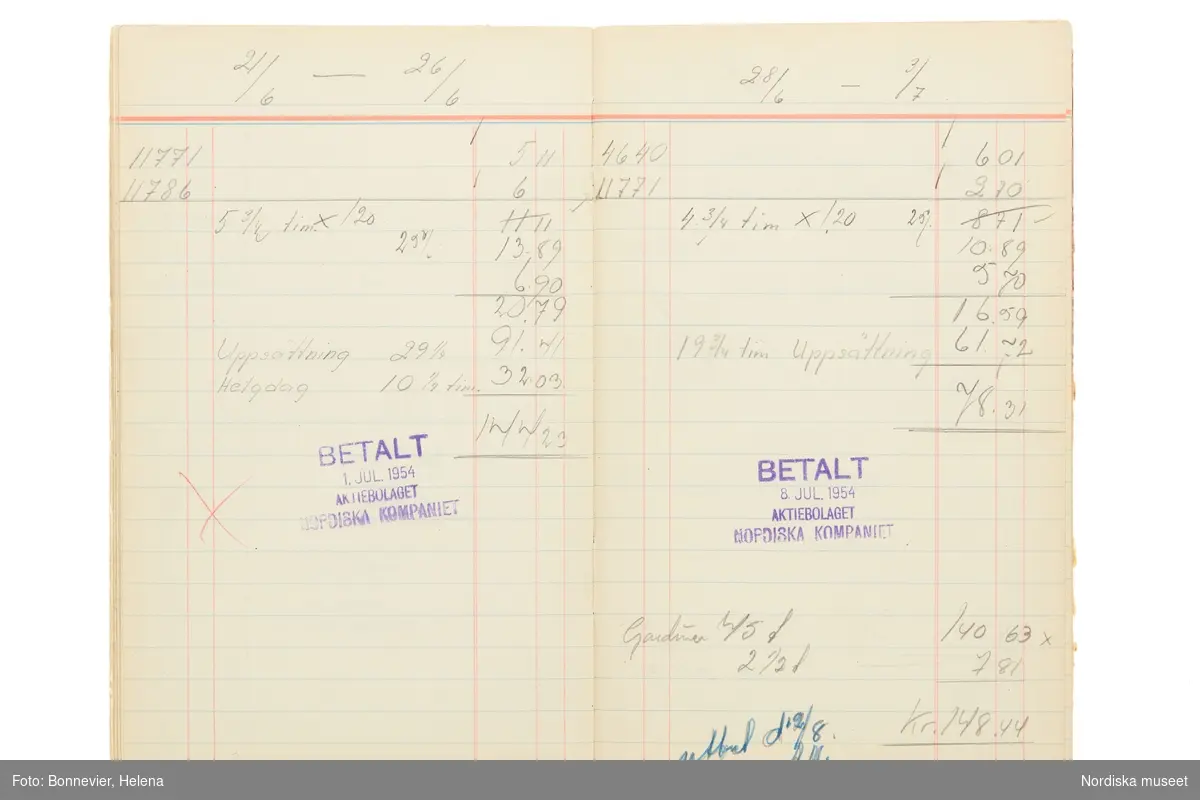 21/6 — 26/6
11771 5 11
11786 6
5 3/4 tim x 1.20 11 11
25% 13.89
6.90
20.79
Uppsättning 29 1/4 91.41
Helgdag 10 1/4 tim. 32.03
144 23
BETALT
1. JUL. 1954
AKTIEBOLAGET
NORDISKA KOMPANIET
28/6 — 3/7
4640 6 01
11771 2 70
4 3/4 tim x 1.20 25% 8 71
10.89
5 70
16.59
19 3/4 tim Uppsättning 61.72
78.31
BETALT
8. JUL. 1954
AKTIEBOLAGET
NORDISKA KOMPANIET
Gardiner 45 140 63 x
2 1/2 7 81
Kr. 148.44
utbet d 12/8.
Foto: Bonnevier, Helena
Nordiska museet